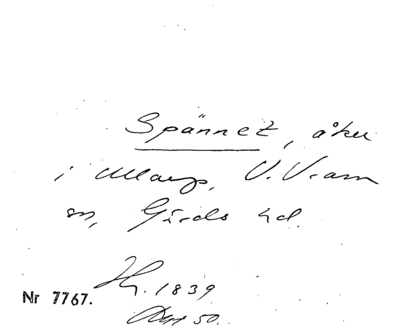 Spännet, åker
i Ullarp, V. Vram
sn, Gärds hd.
1839
Nr 7767.
Akt 50.